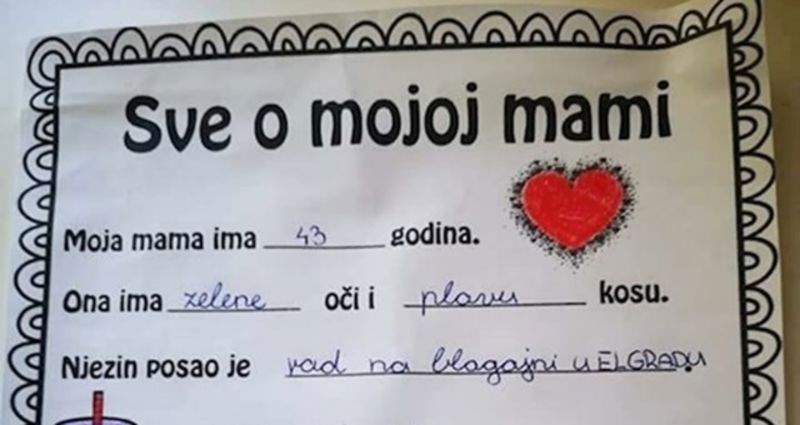 Sve o mojoj mami
Moja mama ima 43 godina.
Ona ima zelene oči i plavu kosu.
Njezin posao je rad na blagajni u ELGRADU